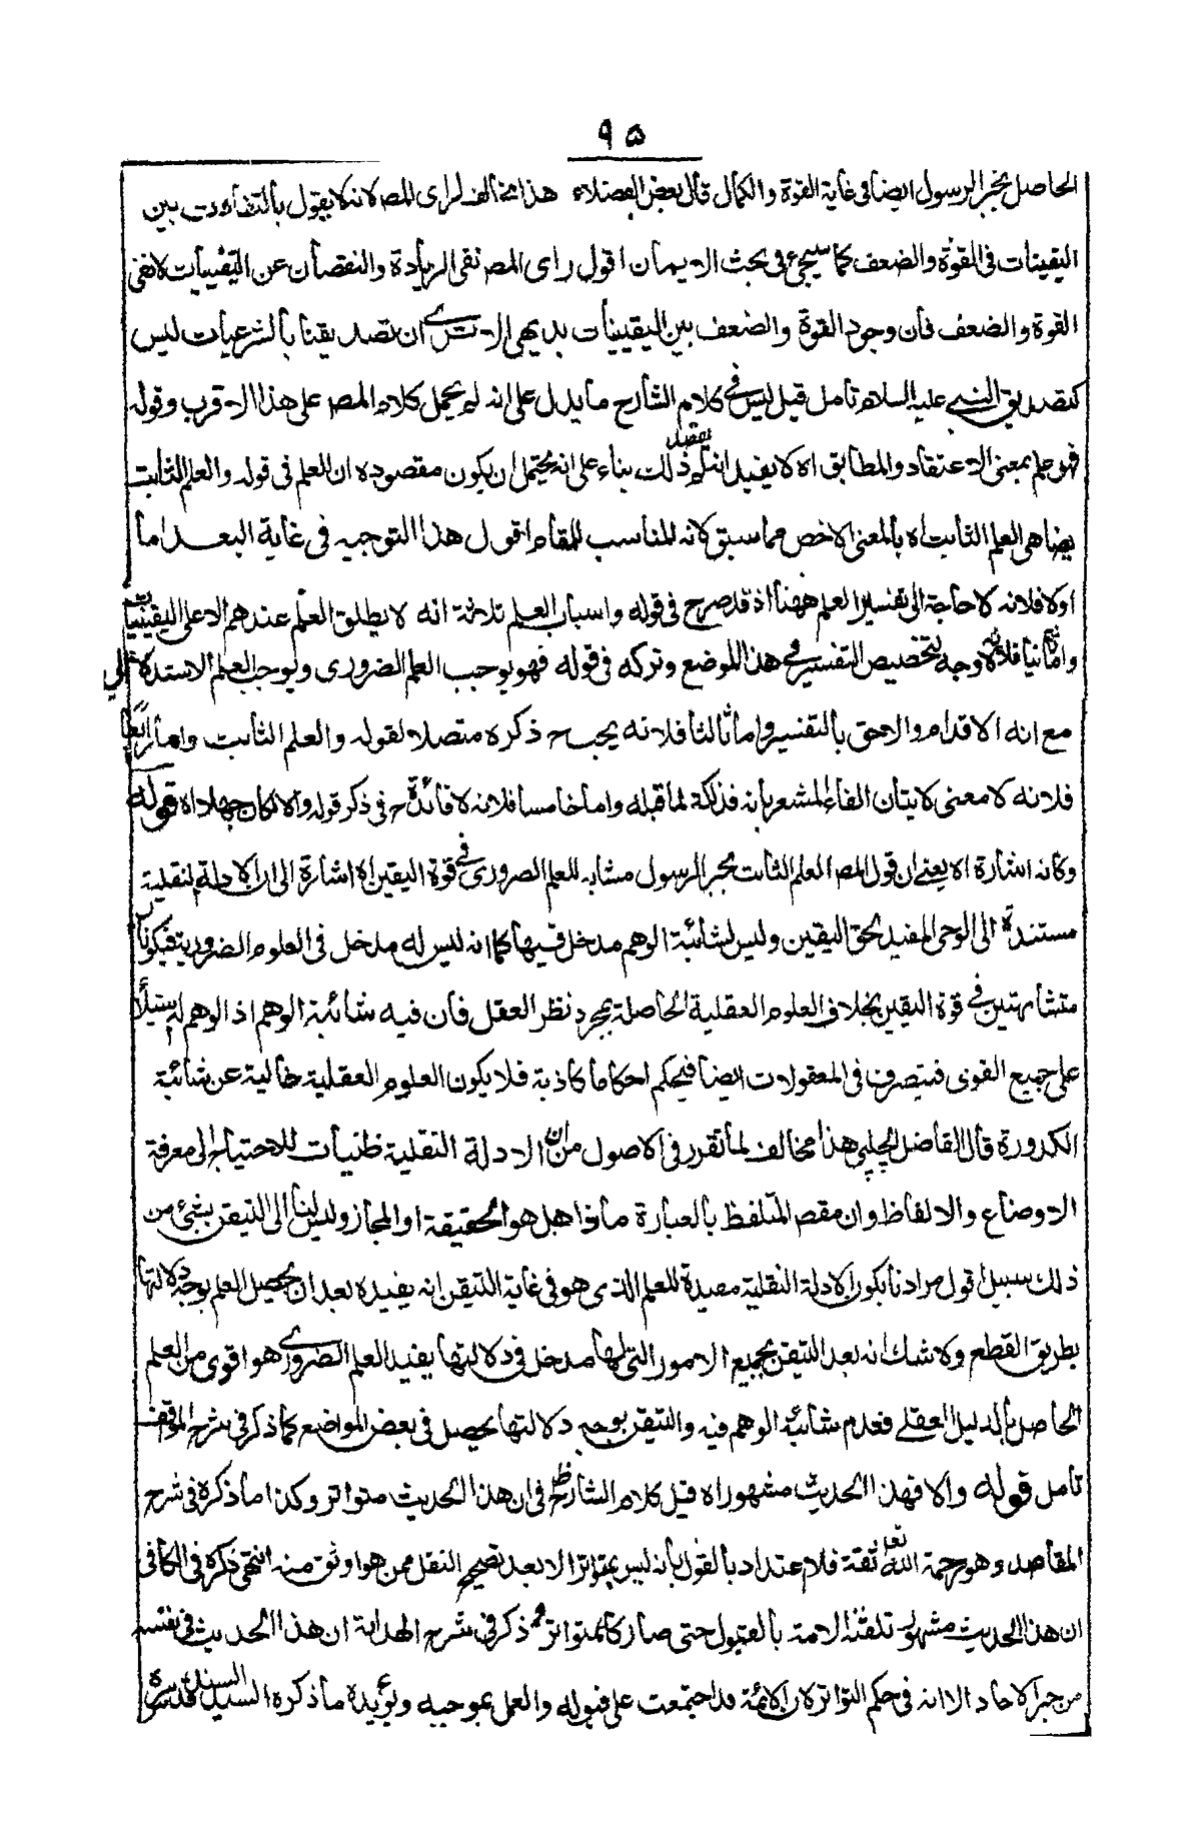 ٩٥
الحاصل بخبر الرسول ايضا فى غاية القوة والكمال قال بعض الفضلاء هذا مخالف لراى المص لانه لا يقول بالتفاوت بين
اليقينات فى القوة والضعف كما سيجئ فى بحث الايمان اقول راى المص نفى الزيادة والنقصان عن اليقينيات لا نفى
القوة والضعف فان وجود القوة والضعف بين اليقينيات بديهى الا ترى ان تصديقنا بالشرعيات ليس
كتصديق النبي عليه السلام تأمل قيل ليس في كلام الشارح ما يدل على انه لم يحمل كلام المص على هذا الاقرب وقوله
فهو علم بمعنى الاعتقاد والمطابق اه لا يفيد انه لم يقصد ذلك بناء على انه يحتمل ان يكون مقصوده ان العلم فى قوله والعلم الثابت
يضاهى العلم الثابت اه بالمعنى الاخص مما سبق لانه المناسب للمقام اقول هذا التوجيه فى غاية البعد اما
اولا فلانه لا حاجة الى تفسير العلم ههنا اذ قد صرح فى قوله واسباب العلم ثلاثة انه لا يطلق العلم عندهم الا على اليقينيات
واما ثانيا فلانه لا وجه لتخصيص التفسير في هذا الموضع وتركه فى قوله فهو يوجب العلم الضرورى ويوجب العلم الاستدلالي
مع انه الاقدم والاحق بالتفسير واما ثالثا فلانه يجب ح ذكره متصلا لقوله والعلم الثابت واما رابعا
فلانه لا معنى لايتان الفاء المشعر بانه فذلكة لما قبله واما خامسا فلانه لا فائدة ح فى ذكر قوله والا لكان جهلا اه قوله
وكانه اشارة اه يعني ان قول المص العلم الثابت بخبر الرسول مشابه للعلم الضرورى في قوة اليقين اه اشارة الى ان الادلة النقلية
مستندة الى الوحى المفيد بحق اليقين وليس لشائبة الوهم مدخل فيها كما انه ليس له مدخل فى العلوم الضرورية فيكونا
متشابهتين في قوة اليقين بخلاف العلوم العقلية الحاصلة بمجرد نظر العقل فان فيه شائبة الوهم اذ الوهم له استيلاء
على جميع القوى فيتصرف فى المعقولات ايضا فيحكم احكاما كاذبة فلا يكون العلوم العقلية خالية عن شائبة
الكدورة قال القاضل الچلپى هذا مخالف لما تقرر فى الاصول من ان الادلة النقلية ظنيات للاحتياج الى معرفة
الاوضاع والالفاظ وان مقصد المتلفظ بالعبارة ماذا هل هو الحقيقة او المجاز وليس لنا الى التيقن بشئ من
ذلك سبيل اقول مرادنا بكون الادلة النقلية مفيدة للعلم الذى هو فى غاية التيقن انه يفيده بعد ان يحصل العلم بوجه دلالتها
بطريق القطع ولا شك انه بعد التيقن بجميع الامور التى لها مدخل فى دلالتها يفيد العلم الضروري هو اقوى من العلم
الحاصل بالدليل العقلي فعدم شائبة الوهم فيه والتيقن بوجه دلالتها يحصل فى بعض المواضع كما ذكر فى شرح المواقف
تأمل قوله والا فهذا الحديث مشهور اه قيل كلام الشارح فى ان هذا الحديث متواتر وكذا ما ذكره فى شرح
المقاصد وهو رحمة الله تعا ثقة فلا اعتداد بالقول بانه ليس بمتواتر الا بعد تصحيح النقل ممن هو اوثق منه انتهى ذكره فى الكافى
ان هذا الحديث مشهور تلقته الامة بالقبول حتى صار كالمتواتر ذكر فى شرح الهداية ان هذا الحديث فى نفسه
من خبر الاحاد الا انه فى حكم التواتر لان الائمة قد اجتمعت على قبوله والعمل بموجبه ويؤيده ما ذكره السيد السند قدس سره